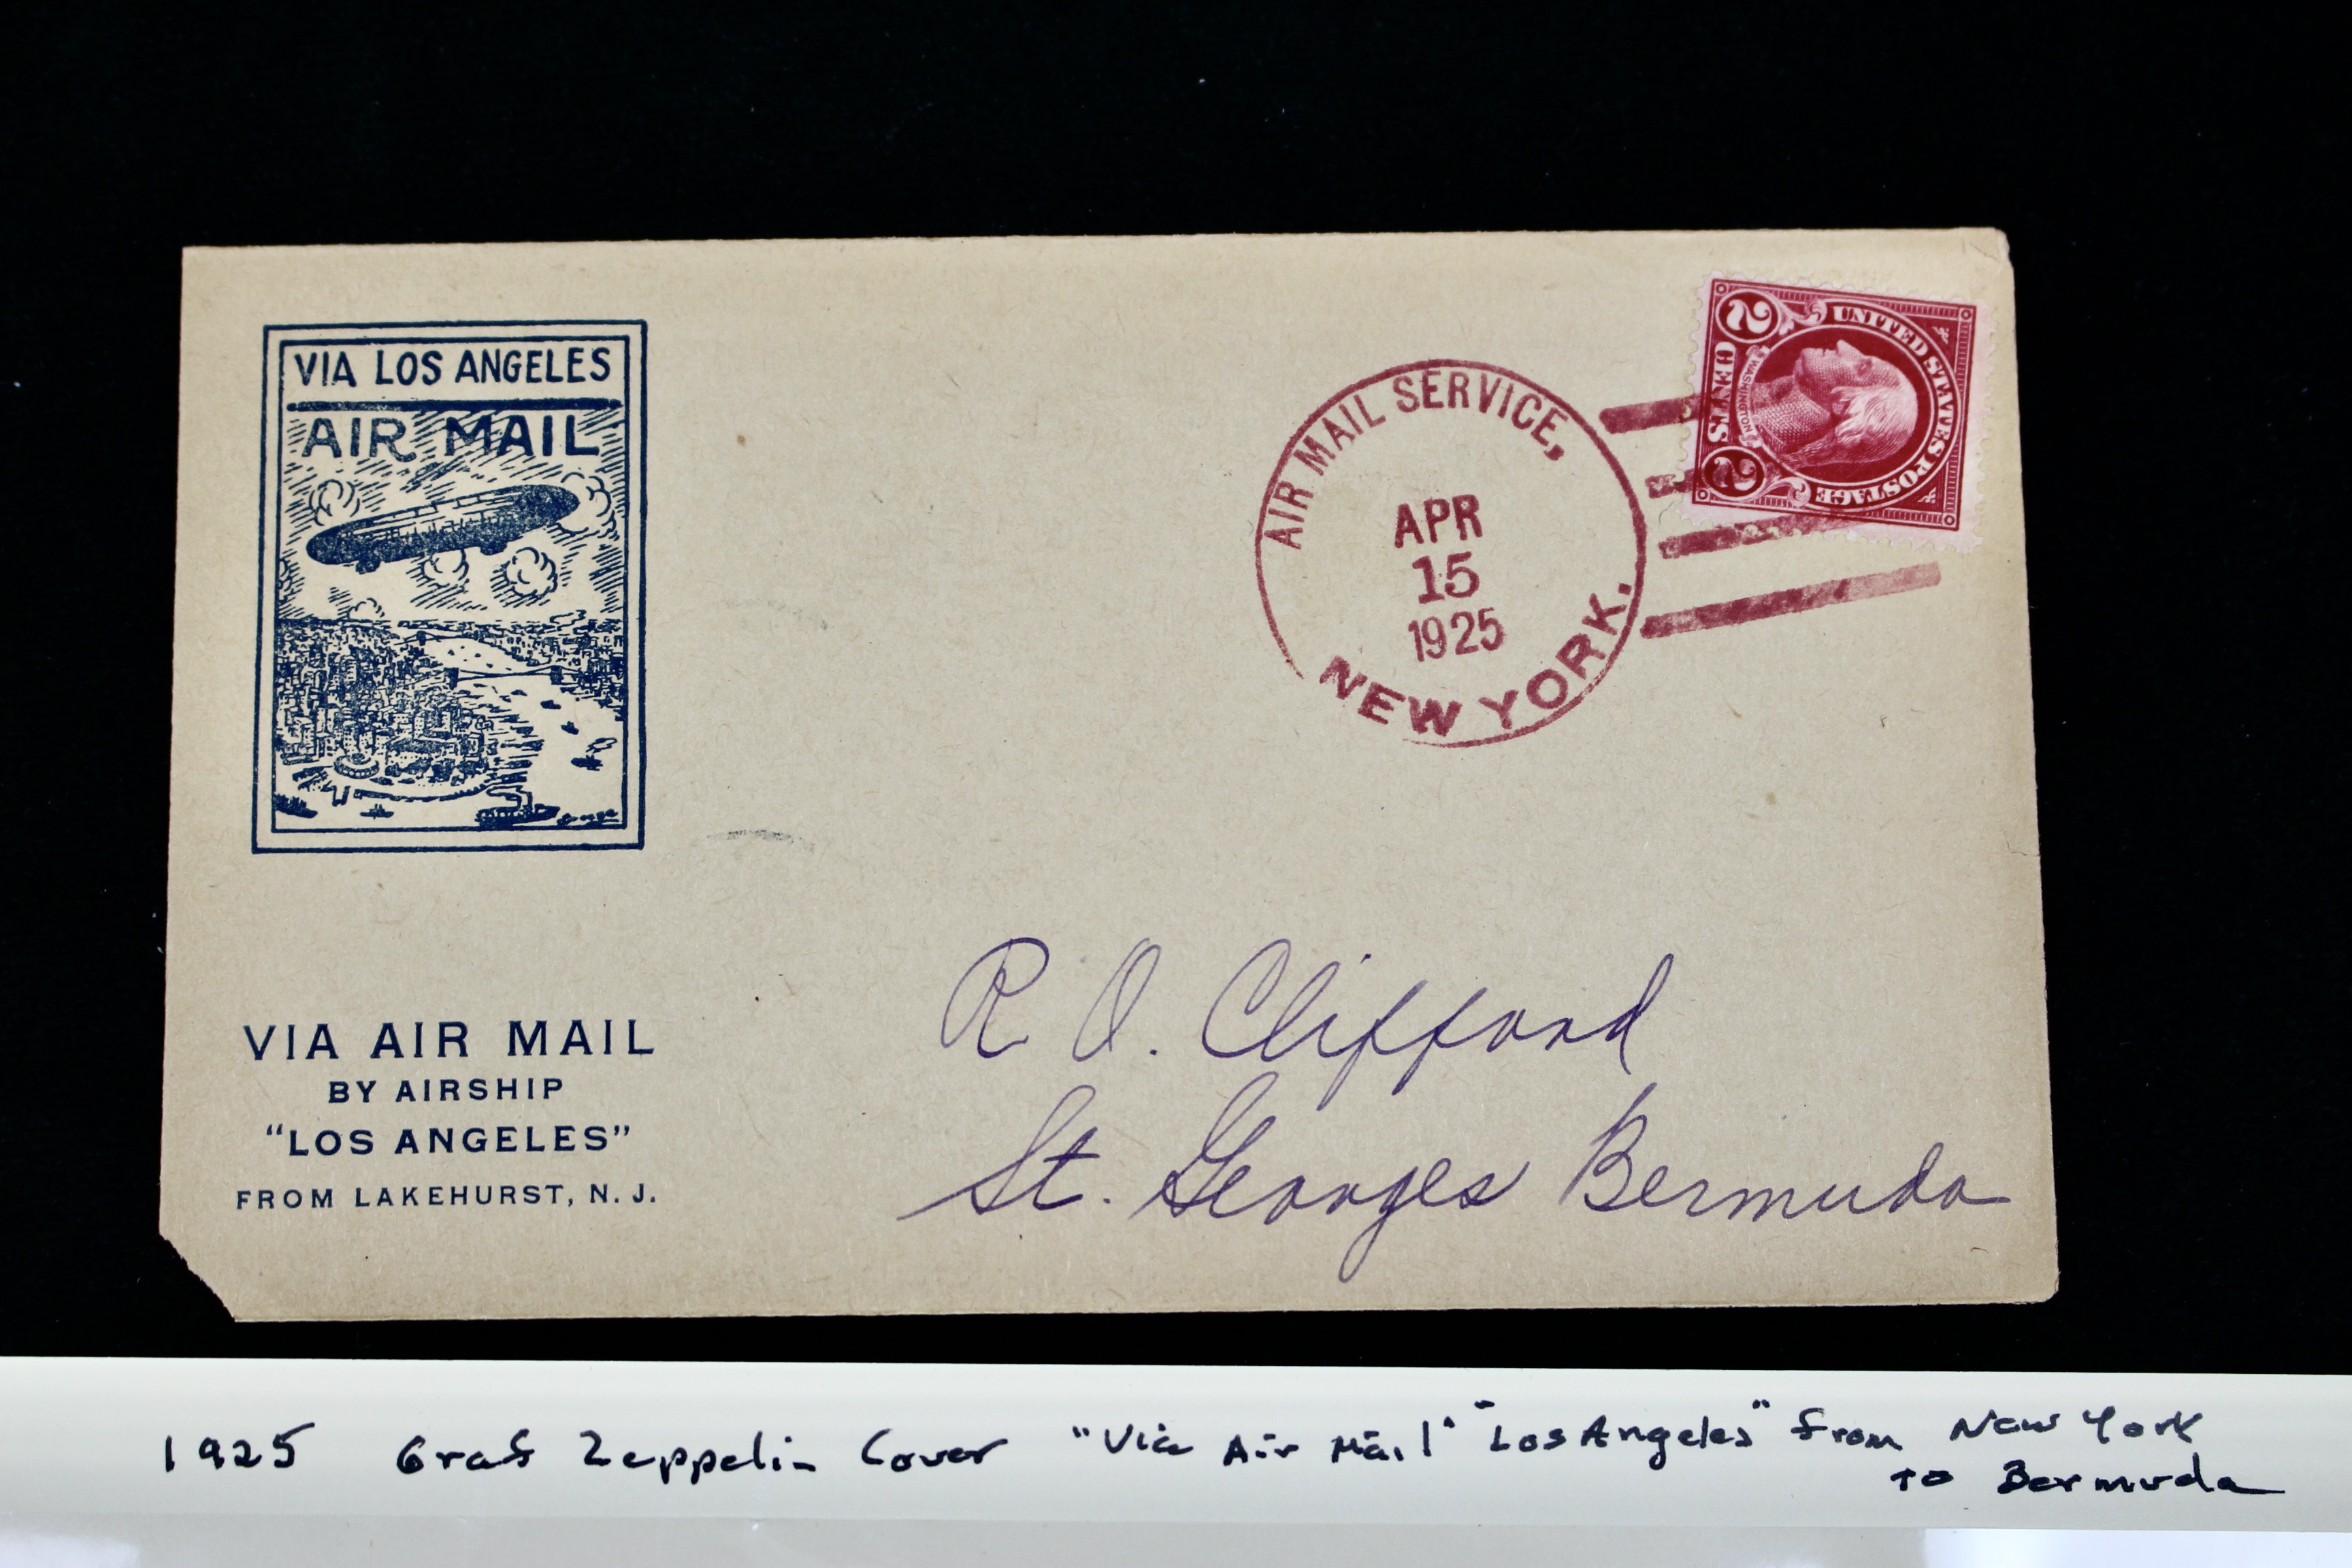 VIA LOS ANGELES
AIR MAIL
AIR MAIL SERVICE,
APR
15
1925
NEW YORK.
UNITED STATES POSTAGE
WASHINGTON
2 CENTS 2
R O. Clifford
St. Georges Bermuda
VIA AIR MAIL
BY AIRSHIP
"LOS ANGELES"
FROM LAKEHURST, N. J.
1925 Graf Zeppelin Cover "Via Air Mail" "Los Angeles" from New York
to Bermuda